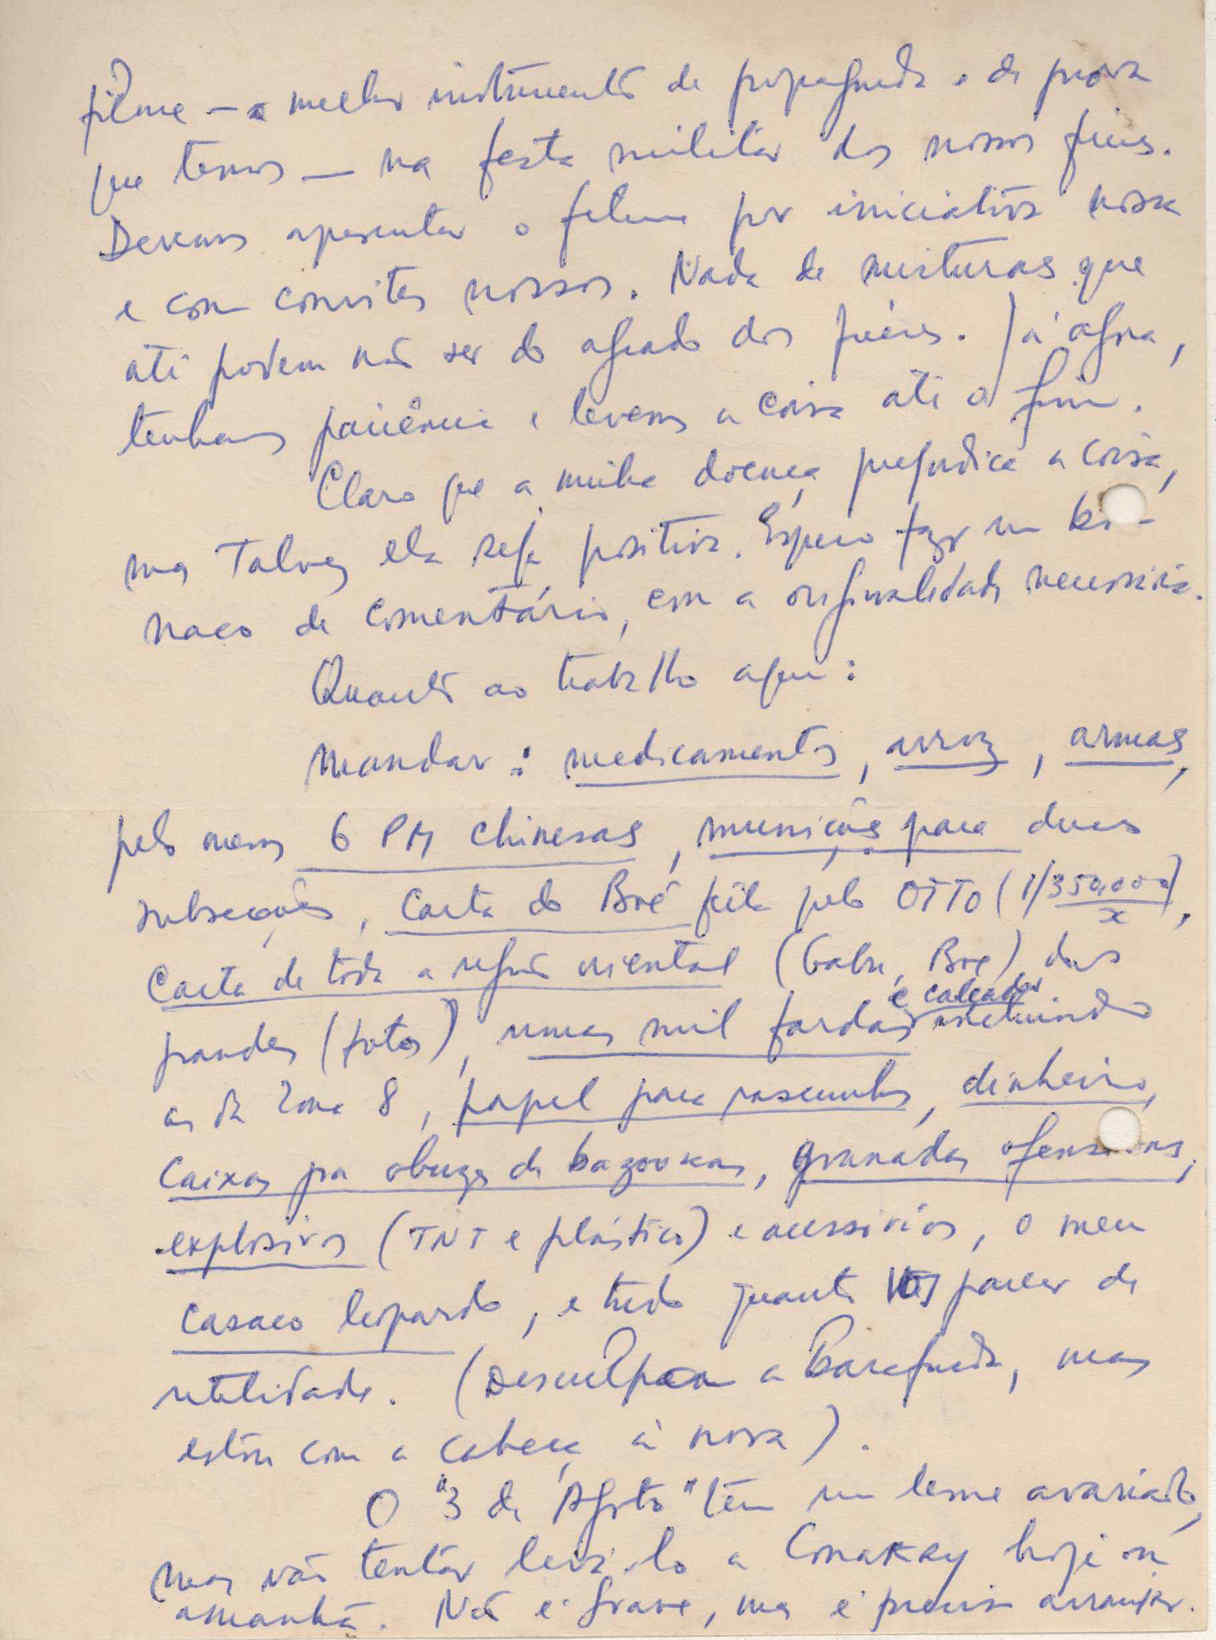 filme — o melhor instrumento de propaganda e de prova
que temos — na festa militar dos nossos
Devemos apresentar o filme por iniciativa nossa
e com convites nossos. Nada de misturas que
até podem não ser do agrado dos Já agora,
tenhamos paciência e levemos a coisa até o fim.
Claro que a minha doença prejudica a coisa,
mas talvez ela seja positiva. Espero fazer um bo-
naco de comentário, com a originalidade necessária.
Quanto ao trabalho aqui:
mandar: medicamentos, arroz, armas,
pelo menos 6 PM chinesas, munições para duas
subsecções, Carta do Boé feita pelo OTTO (1/350.000),
x
Carta de toda a região oriental (Gabu, Boé) das
grandes (fotos), umas mil fardas e calçados incluindo
as da Zona 8, papel para rascunhos, dinheiro,
Caixas pra obuzes de bazookas, granadas ofensivas,
explosivos (TNT e plástico) e acessórios, o meu
casaco leopardo, e tudo quanto vos parecer de
utilidade. (Desculpem a barafunda, mas
estou com a cabeça à nora).
O "3 de Agosto" tem um leme avariado,
mas vão tentar levá-lo a Conakry hoje ou
amanhã. Não é grave, mas é preciso arranjar.